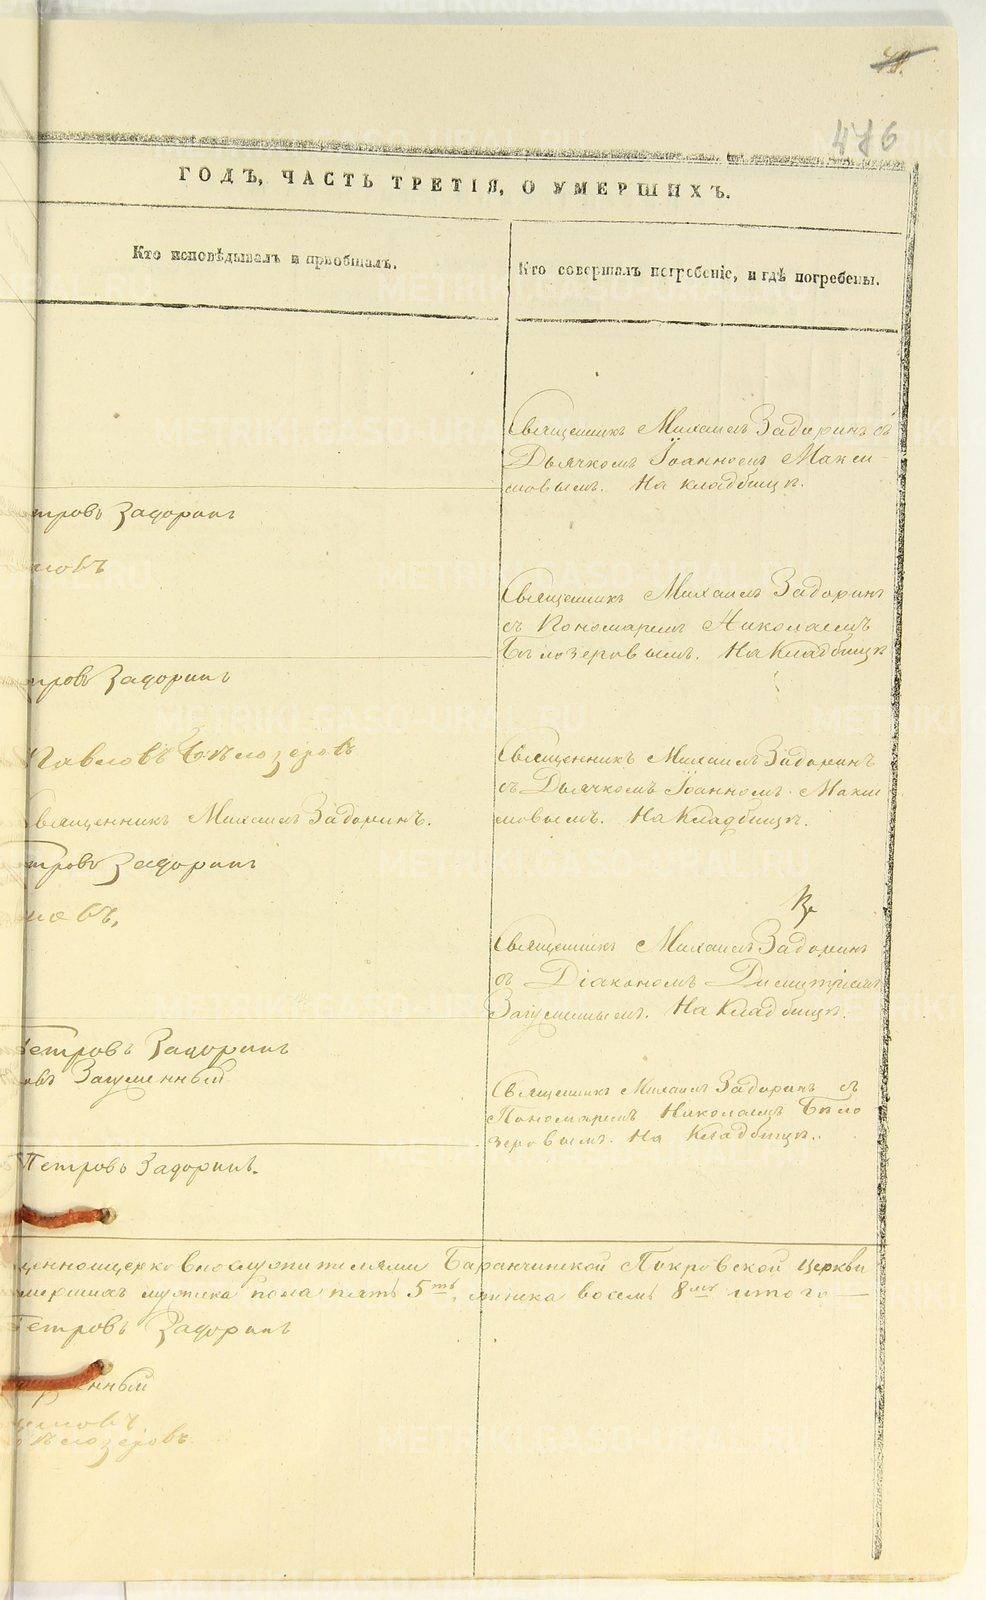 78.
476
ГОДЪ, ЧАСТЬ ТРЕТІЯ, О УМЕРШИХЪ.
Кто исповѣдывалъ и пріобщалъ.
Кто совершалъ погребеніе, и гдѣ погребены.
Священникъ Михаилъ Задоринъ съ
Дьячкомъ Іоанномъ Макси-
мовымъ. На кладбищѣ.
Петровъ Задоринъ
мовъ
Священникъ Михаилъ Задоринъ
съ Пономаремъ Николаемъ
Бѣлозеровымъ. На Кладбищѣ
тровъ Задоринъ
Павловъ Бѣлозеровъ
Священникъ Михаилъ Задоринъ.
Священникъ Михаилъ Задоринъ
съ Дьячкомъ Іоанномъ Макси
мовымъ. На Кладбищѣ.
тровъ Задоринъ
мовъ,
Священникъ Михаилъ Задоринъ
съ Діакономъ Димитріемъ
Загуменнымъ. На Кладбищѣ.
Петровъ Задоринъ
овъ Загуменный
Священникъ Михаилъ Задоринъ съ
Пономаремъ Николаемъ Бѣло
зеровымъ. На Кладбищѣ.
Петровъ Задоринъ.
щенноцерковнослужителями Баранчинской Покровской церкви
мершихъ мужска пола пять 5ть, женска восемь 8мь итого
Петровъ Задоринъ
менный
симовъ
Бѣлозеровъ
METRIKI.GASO-URAL.RU